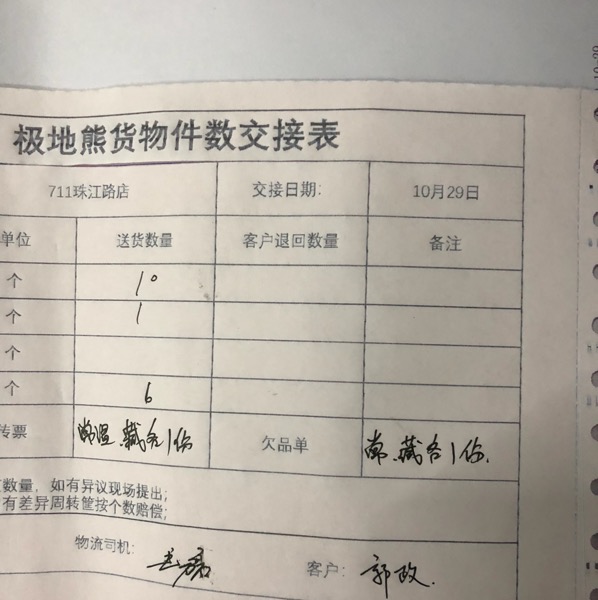 极地熊货物件数交接表
711珠江路店 交接日期: 10月29日
单位 送货数量 客户退回数量 备注
个 10
个 1
个
个 6
传票 常温 藏各1份 欠品单 常 藏各1份.
数量,如有异议现场提出;
有差异周转筐按个数赔偿;
物流司机: 客户: 郭政.